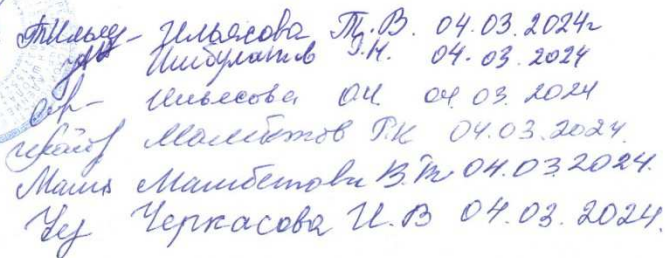 Ильясова Т.В. 04.03.2024г
Ишбулатов Э.Н. 04.03.2024
Ильясова О.И. 04.03.2024
Мамбетов Г.К 04.03.2024.
Мамбетова В.Т 04.03.2024.
Черкасова И.В 04.03.2024.